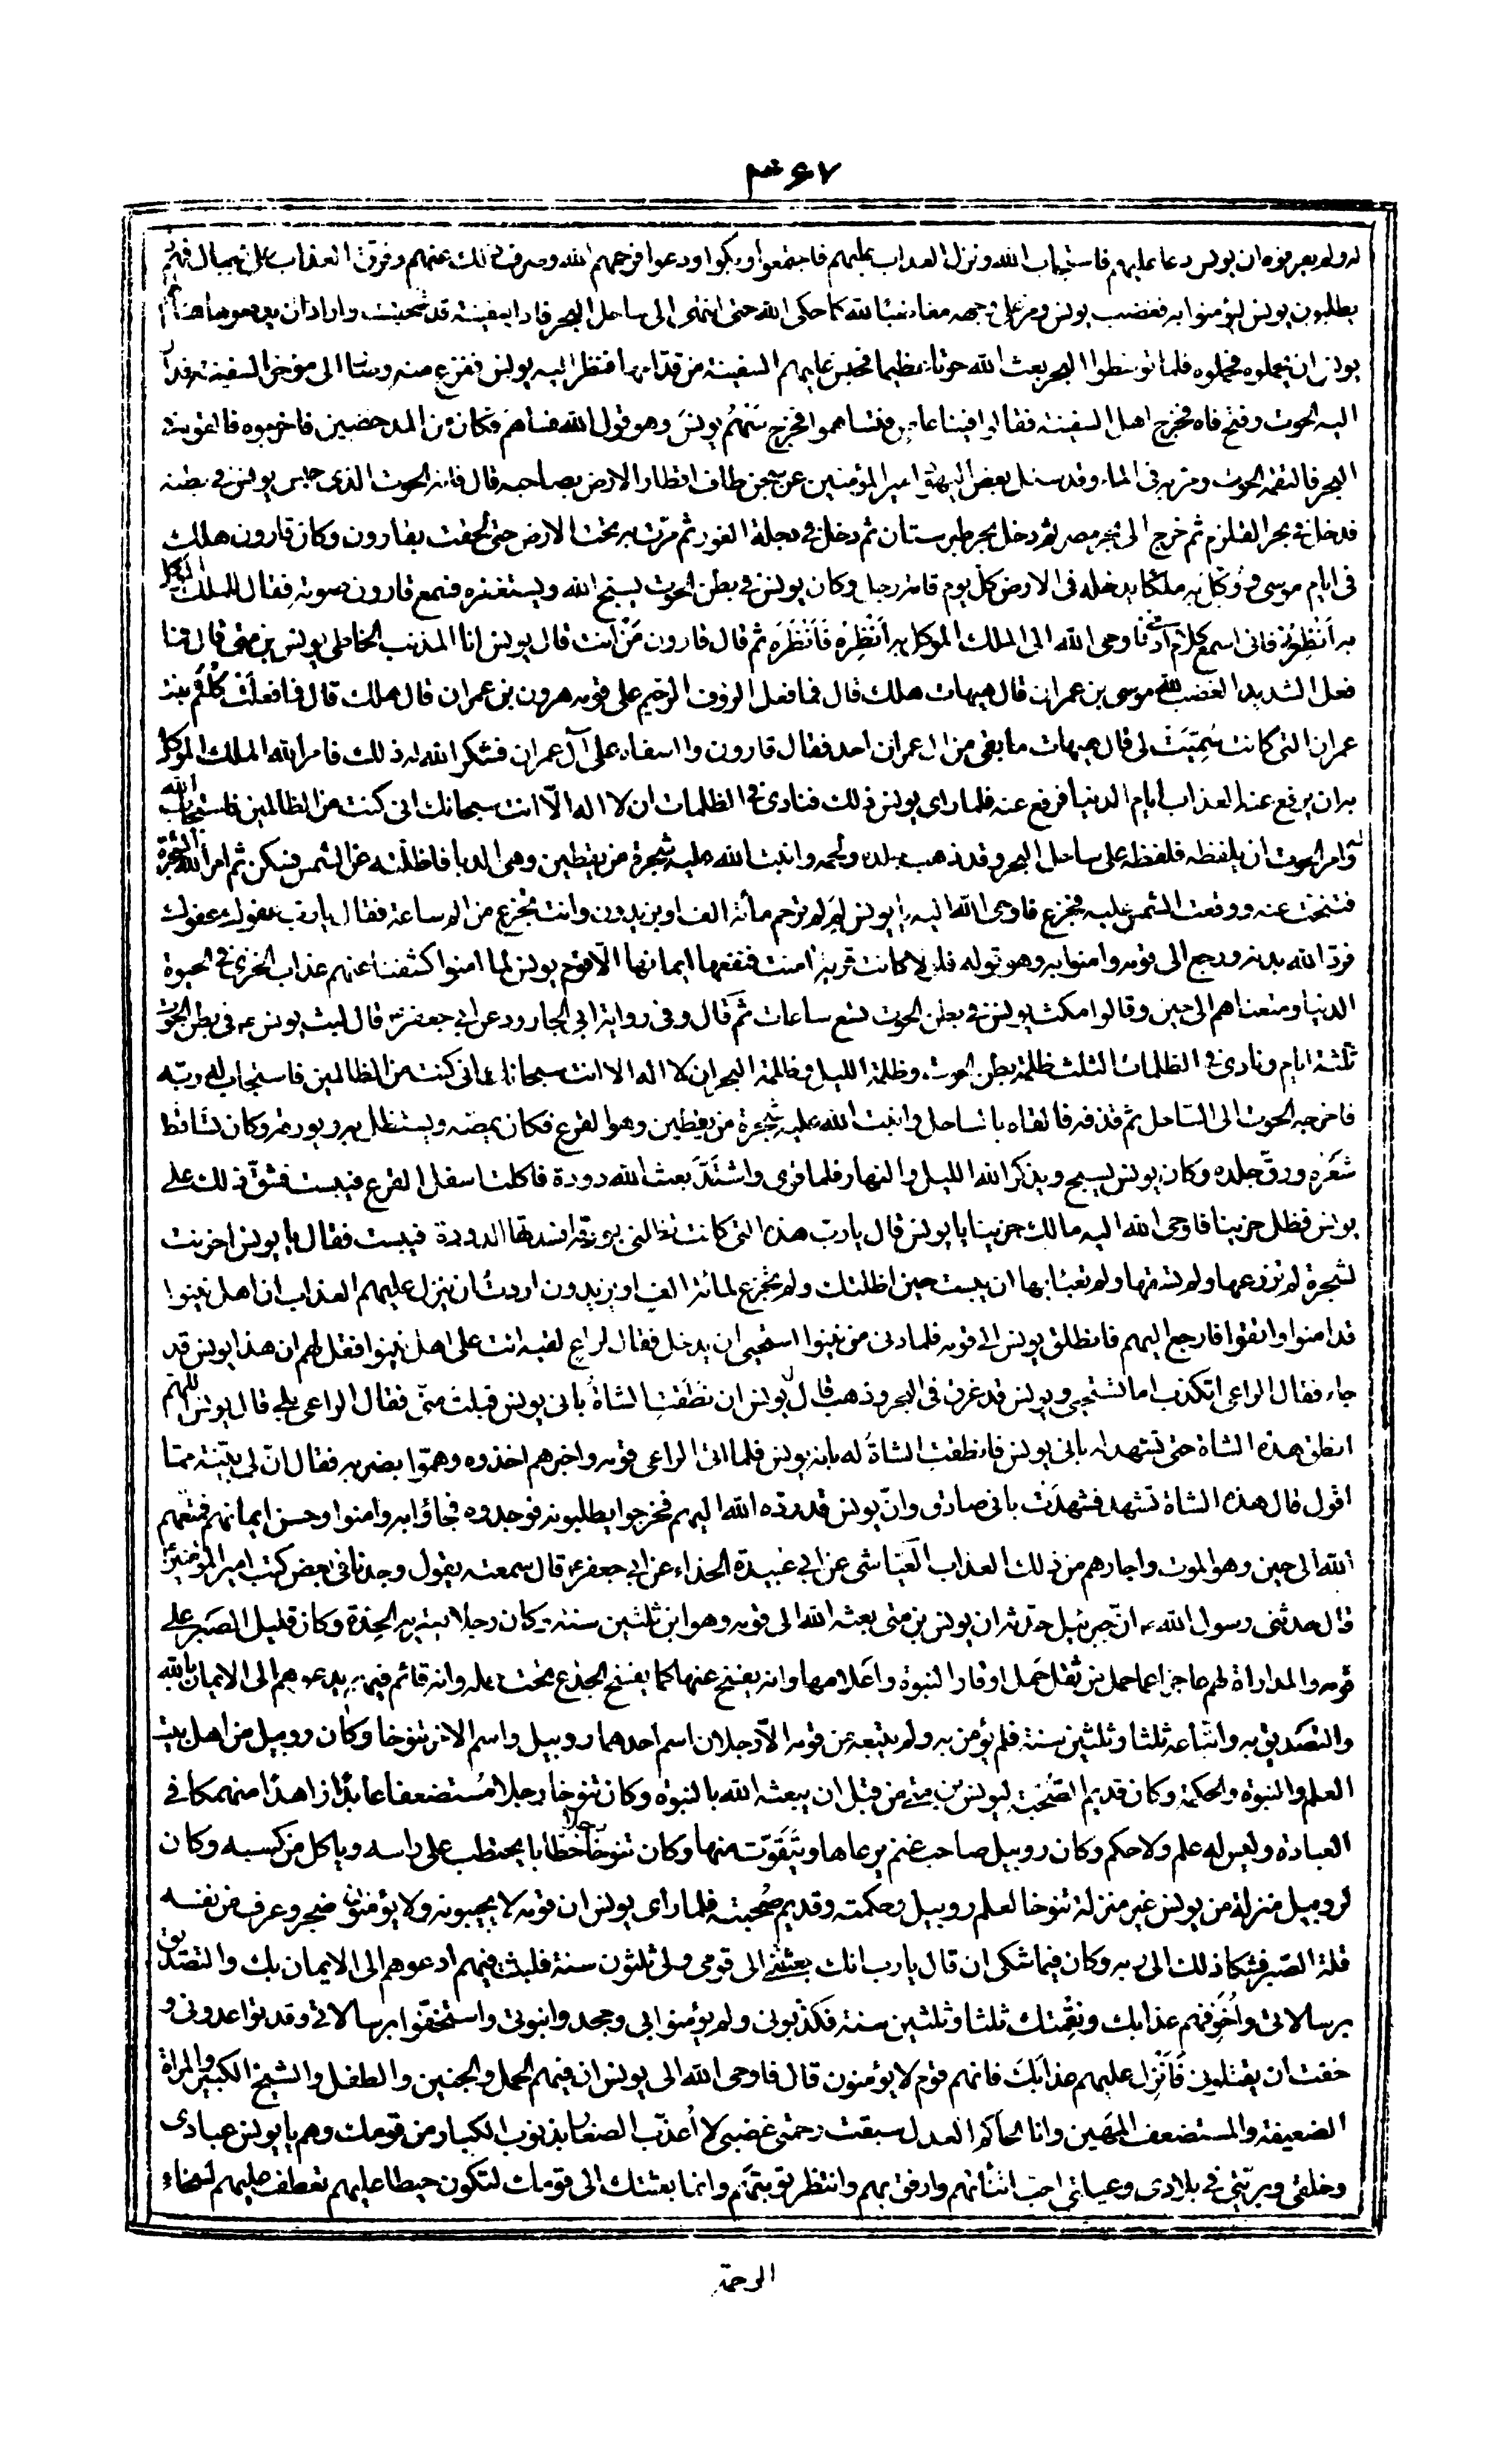 ٣٦٧
له ولم يعرفوه ان يونس دعا عليهم فاستجاب الله ونزل العذاب عليهم فاجتمعوا وبكوا ودعوا فرحمهم الله وصرف ذلك عنهم وفرق العذاب على الجبال فهم
يطلبون يونس ليؤمنوا به فغضب يونس ومر على وجهه مغاضبا لله كما حكى الله حتى انتهى الى ساحل البحر فاذا سفينة قد شحنت وارادوا ان يدفعوها فسألهم
يونس ان يحملوه فحملوه فلما توسطوا البحر بعث الله حوتا عظيما فحبس عليهم السفينة من قدامها فنظر اليه يونس ففزع منه وصار الى مؤخر السفينة فدار
اليه الحوت وفتح فاه فخرج اهل السفينة فقالوا فينا عاص فتساهموا فخرج سَهْمُ يونسَ وهو قول الله فساهم فكان من المدحضين فاخرجوه فالقوه في
البحر فالتقمه الحوت ومر به فى الماء وقد سئل بعض اليهود امير المؤمنين عن سجن طاف اقطار الارض بصاحبه قال فانه الحوت الذى حبس يونس في بطنه
فدخل في بحر القلزم ثم خرج الى بحر مصر ثم دخل بحر طبرستان ثم دخل في دجلة الغور ثم مرّت به تحت الارض حتى لحقت بقارون وكان قارون هلك
فى ايام موسى ووكل به ملكا يدخله فى الارض كل يوم قامة رجل وكان يونس في بطن الحوت يسبح الله ويستغفره فسمع قارون صوته فقال للملك الموكل
به اَنْظِرْنى فانى اسمع كلام آدمى فاوحى الله الى الملك الموكل به اَنْظِرْهُ فَاَنْظَرَه ثم قال قارون مَنْ انت قال يونس انا المذنب الخاطى يونس بن متى قال فما
فعل الشديد الغضب لله موسى بن عمران قال هيهات هلك قال فما فعل الرؤف الرحيم على قومه هرون بن عمران قال هلك قال فما فعلت كلثم بنت
عمران التى كانت سُمِّيَتْ لى قال هيهات ما بقى من ال عمران احد فقال قارون وا اسفاه على آل عمران فشكر الله له ذلك فامر الله الملك الموكل
به ان يرفع عنه العذاب ايام الدنيا فرفع عنه فلما راى يونس ذلك فنادى فى الظلمات ان لا اله الّا انت سبحانك انى كنت من الظالمين فاستجاب الله
له وامر الحوت ان يلفظه فلفظه على ساحل البحر وقد ذهب جلده ولحمه وانبت الله عليه شجرة من يقطين وهى الدبا فاظلّته عن الشمس فسكن ثم امر الله الشجرة
فتنحت عنه ووقعت الشمس عليه فجزع فاوحى الله اليه يا يونس لِمَ لم ترحم مائة الف او يزيدون وانت تجزع من الم ساعة فقال يا رب عفوك عفوك
فردّ الله بدنه ورجع الى قومه وامنوا به وهو قوله فلولا كانت قرية امنت فنفعها ايمانها الّا قوم يونس لما امنوا كشفنا عنهم عذاب الخزى فى الحيوة
الدنيا ومتعناهم الى حين وقالوا مكث يونس في بطن الحوت تسع ساعات ثم قال وفى رواية ابى الجارود عن ابى جعفر ع قال لبث يونس ع فى بطن الحوت
ثلثة ايام ونادى فى الظلمات الثلث ظلمة بطن الحوت وظلمة الليل وظلمة البحر ان لا اله الا انت سبحانك انى كنت من الظالمين فاستجاب له ربّه
فاخرجه الحوت الى السّاحل ثم قذفه فالقاه بالساحل وانبت الله عليه شجرة من يقطين وهو القرع فكان يمصّه ويستظل به وبورقه وكان تساقط
شَعْره ورقّ جلده وكان يونس يسبح ويذكر الله الليل والنهار فلما قوى واشتدّ بعث الله دودة فاكلت اسفل القرع فيبست فشقّ ذلك على
يونس فظل حزينا فاوحى الله اليه مالك حزينا يا يونس قال يا ربّ هذه التى كانت تظلنى بورقها فسلطت عليها الدودة فيبست فقال يا يونس احزنت
لشجرة لم تزرعها ولم تسقها ولم تعبأ بها ان يبست حين اظلتك ولم تجزع لمائة الف او يزيدون اردت ان ينزل عليهم العذاب ان اهل نينوا
قد امنوا واتقوا فارجع اليهم فانطلق يونس الى قومه فلما دنى من نينوا استحيى ان يدخل فقال لراعٍ لقيه ائت على اهل نينوا فقل لهم ان هذا يونس قد
جاء فقال الراعى اتكذب اما تستحيى ويونس قد غرق فى البحر وذهب قال يونس ان نطقت الشاة بانى يونس قبلت منّى فقال الراعى بلى قال يونس اللهم
انطق هذه الشاة حتى تشهد له بانى يونس فانطقت الشاة له بانه يونس فلما اتى الراعى قومه واخبرهم اخذوه وهمّوا بضربه فقال انّ لى بيّنة ممّا
اقول قال هذه الشاة تشهد فشهدَت بانى صادق وانّ يونس قد ردّه الله اليهم فخرجوا يطلبونه فوجدوه فجاؤا به وامنوا وحسن ايمانهم فمتعهم
الله الى حين وهو الموت واجارهم من ذلك العذاب العيّاشى عن ابى عبيدة الحذاء عن ابى جعفر ع قال سمعته يقول وجدنا فى بعض كتب امير المؤمنين ع
قال حدثنى رسول الله ص انّ جبرئيل حدّثه ان يونس بن متى بعثه الله الى قومه وهو ابن ثلثين سنة وكان رجلا يعتريه الحِدة وكان قليل الصَبر على
قومه والمداراة لهم عاجزا عما حمل من ثقل حَمل اوقار النبوة واعلامها وانه يفسخ عنها كما يفسخ الجذع تحت حمله وانه قائم فيهم يدعوهم الى الايمان بالله
والتصديق به واتّباعه ثلثا وثلثين سنة فلم يؤمن به ولم يتبعه من قومه الّا رجلان اسم احدهما روبيل واسم الاخر تنوخا وكان روبيل من اهل بيت
العلم والنبوة والحكمة وكان قديم الصُّحبة ليونس بن متى من قبل ان يبعثه الله بالنبوة وكان تنوخا رجلا مُستضعفا عابدًا زاهدًا منهمكا فى
العبادة وليس له علم ولا حكم وكان روبيل صاحب غنم يرعاها ويَتَقوّت منها وكان تنوخا رجلا حطّابا يحتطب على راسه وياكل من كسبه وكان
لروبيل منزلة من يونس غير منزلة تنوخا لعلم روبيل وحكمته وقديم صُحبته فلما رأى يونس ان قومه لا يجيبونه ولا يؤمنون ضجر وعرف من نفسه
قلة الصّبر فشكا ذلك الى ربه وكان فيما شكى ان قال يا رب انك بعثتنى الى قومى ولى ثلثون سنة فلبثت فيهم ادعوهم الى الايمان بك والتصديق
برسالاتى واُخَوِّفهم عذابك ونقمتك ثلثا وثلثين سنة فكذّبونى ولم يؤمنوا بى وجحدوا نبوتى واستخفّوا برسالاتى وقد تواعدونى و
خفت ان يقتلونى فَاَنْزِل عليهم عذابَكَ فانهم قوم لا يؤمنون قال فاوحى الله الى يونس ان فيهم الحمل والجنين والطفل والشيخ الكبير والمراة
الضعيفة والمستضعف المَهين وانا الحاكم العدل سبقت رحمتى غضبى لا اُعذّب الصغار بذنوب الكبار من قومك وهم يا يونس عبادى
وخلقى وبريّتى فى بلادى وعيلتى احبّ ان أتاناهم وارفق بهم وانتظر توبتهم وانما بعثتك الى قومك لتكون حيطا عليهم تعطف عليهم لسخاء
الرحمة